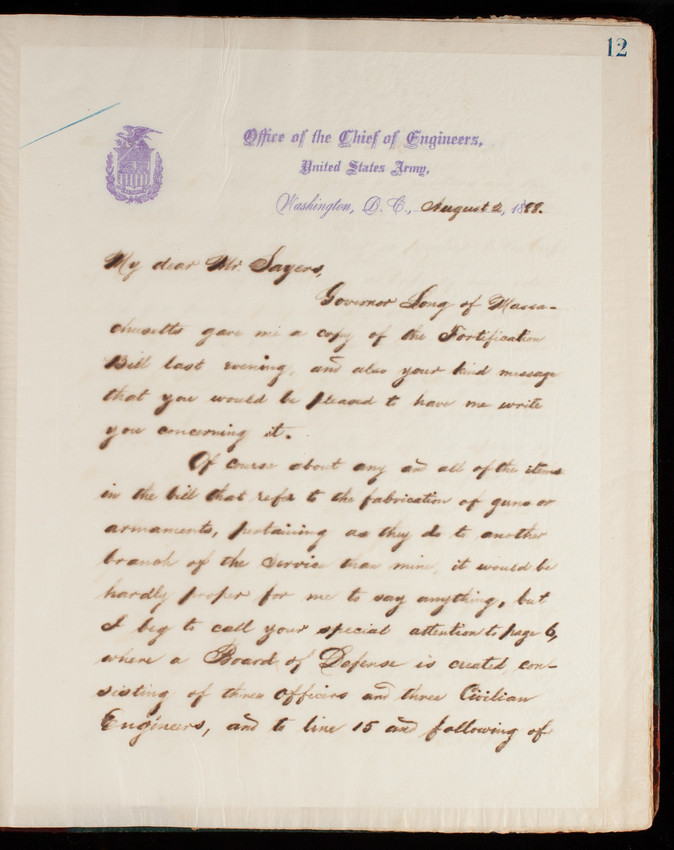 12
Office of the Chief of Engineers,
United States Army,
Washington, D. C., August 2, 1888.
My dear Mr. Sayers,
Governor Long of Massa-
chusetts gave me a copy of the Fortification
Bill last evening, and also your kind message
that you would be pleased to have me write
you concerning it.
Of course about any and all of the items
in the bill that refer to the fabrication of guns or
armaments, pertaining as they do to another
branch of the service than mine, it would be
hardly proper for me to say anything, but
I beg to call your special attention to page 6,
where a Board of Defense is created, con-
sisting of three officers and three Civilian
Engineers, and to line 15 and following of